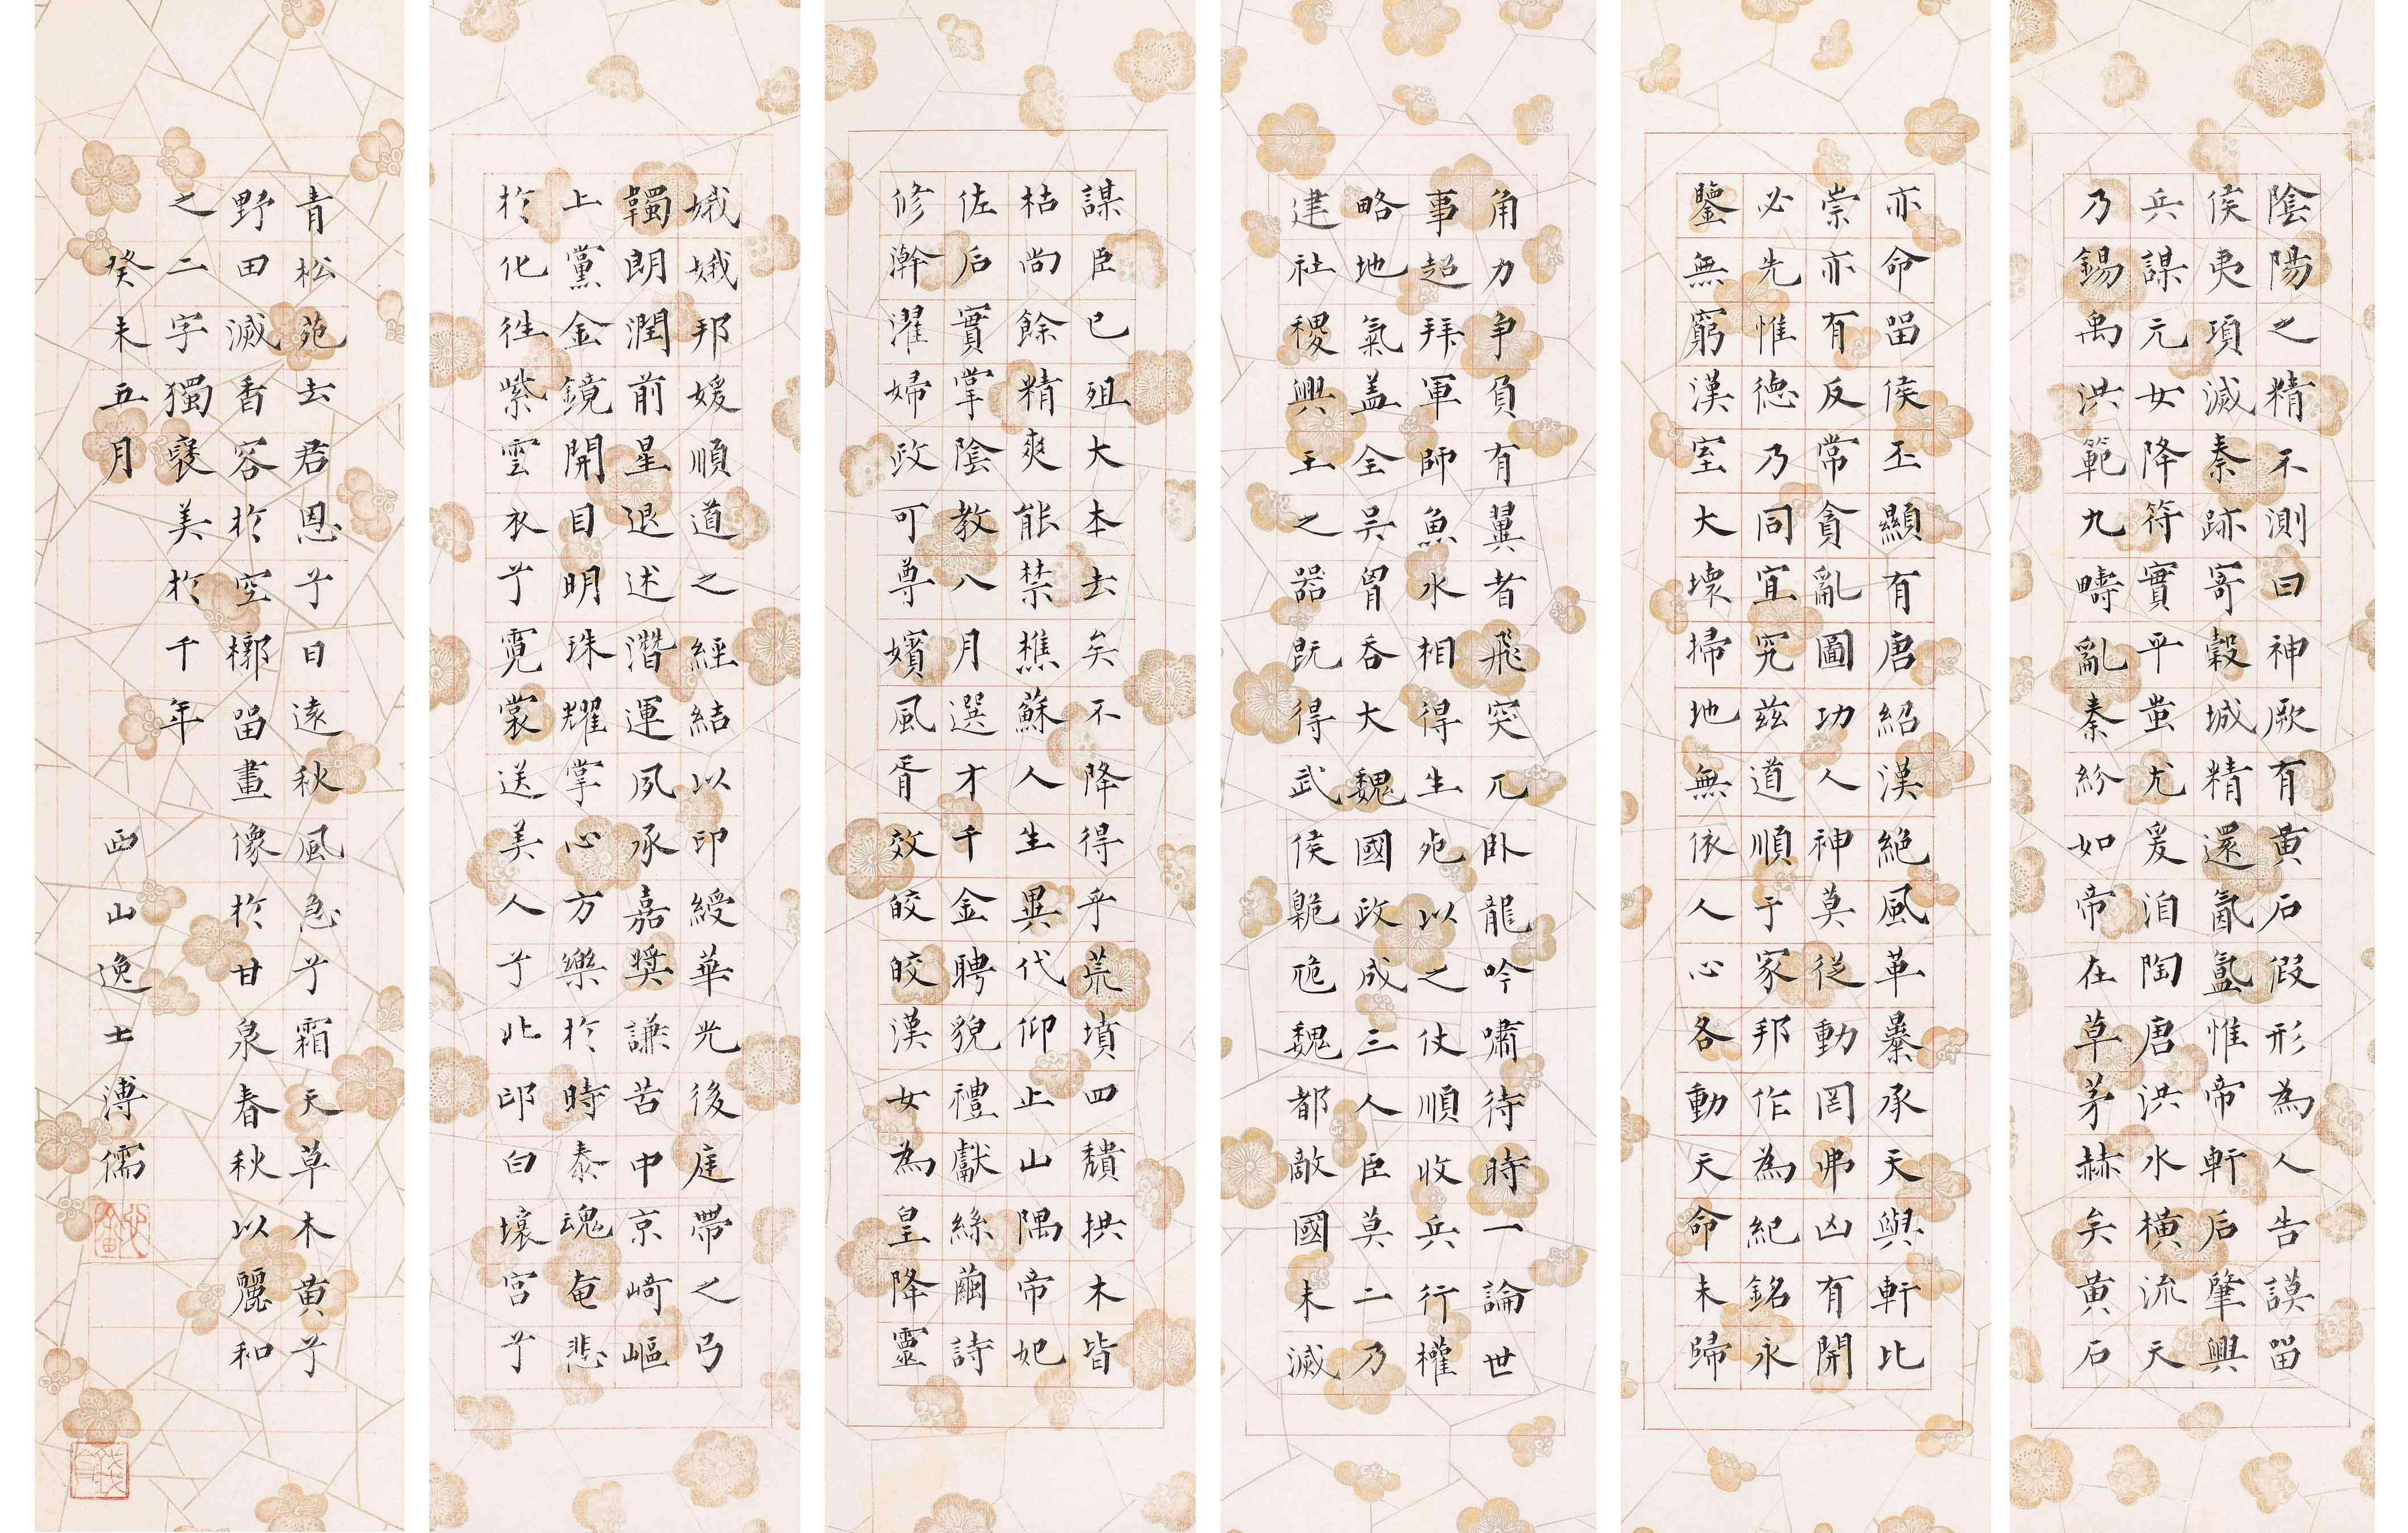 陰陽之精不測曰神厥有黃石假形為人告謨畱
侯夷項滅秦跡寄穀城精還氤氳惟帝軒后肇興
兵謀元女降符實平蚩尤爰洎陶唐洪水橫流天
乃錫禹洪範九疇亂秦紛如帝在草茅赫矣黃石
亦命畱侯丕顯有唐紹漢絕風革暴承天與軒比
崇亦有反常貪亂圖功人神莫從動罔弗凶有開
必先惟德乃同宜究茲道順于家邦作為紀銘永
鑒無窮漢室大壞掃地無依人心各動天命未歸
角力爭負有翼者飛突兀臥龍吟嘯待時一論世
事超拜軍師魚水相得生死以之仗順收兵行權
略地氣蓋全吳胃吞大魏國政成三人臣莫二乃
建社稷興王之器既得武侯臲卼魏都敵國未滅
謀臣已殂大本去矣不降得乎荒墳四隤拱木皆
枯尚餘精爽能禁樵蘇人生異代仰止山隅帝妃
佐后實掌陰教八月選才千金聘貌禮獻絲繭詩
修澣濯婦政可尊嬪風胥效皎皎漢女為皇降靈
娥娥邦媛順道之經結以印綬華光後庭帶之弓
韣朗潤前星退述潛運夙承嘉獎謙苦中京崎嶇
上黨金鏡開目明珠耀掌心方樂於時泰魂奄悲
於化往紫雲衣兮霓裳送美人兮北邙白壤宮兮
青松苑去君恩兮日遠秋風急兮霜天草木黃兮
野田滅香容於空槨畱畫像於甘泉春秋以麗和
之二字獨襃美於千年
癸未五月 西山逸士溥儒